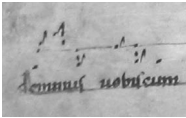 dominus uobiscum